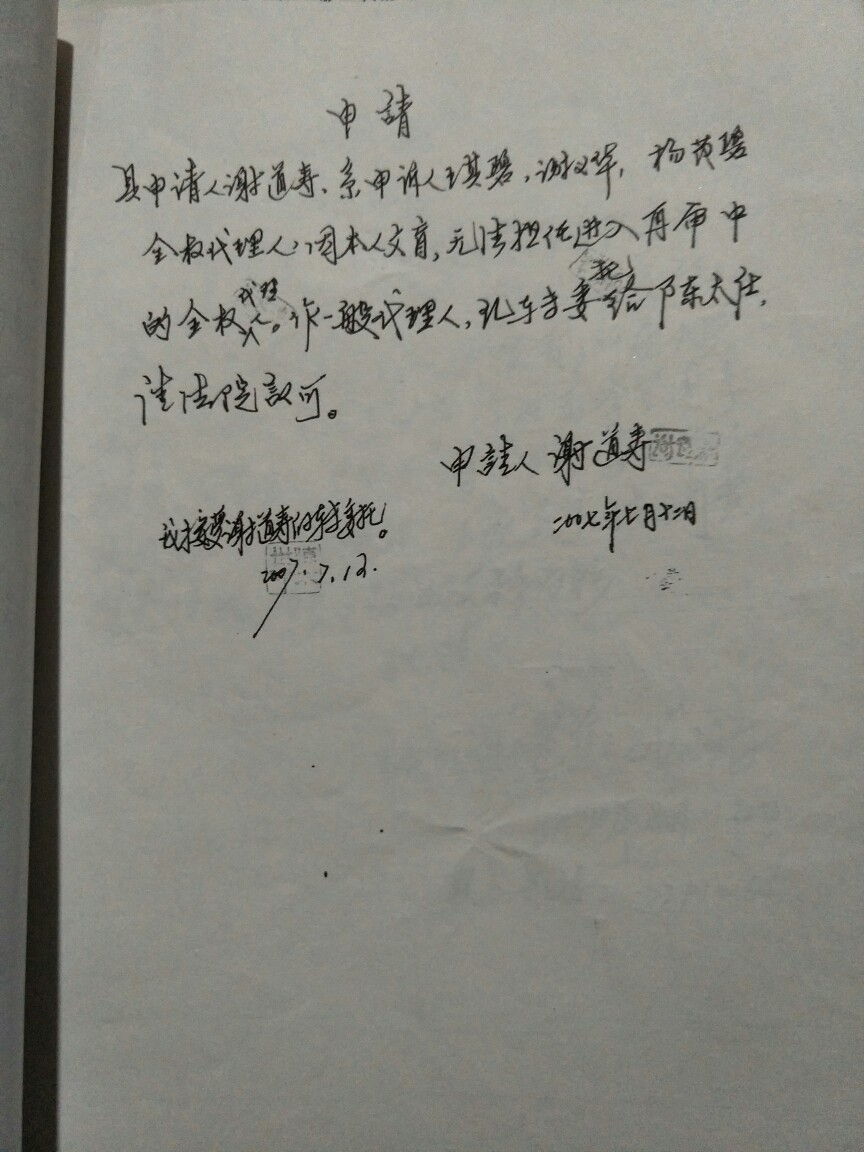 申請
具申请人谢道寿、系申诉人琪碧,谢义华,杨茂碧
全权代理人,因本人文盲,无法担任进入再审中
的全权代理人。作一般代理人,现转委托给陈太仕,
请法院認可。
申請人 谢道寿
二00七年七月十二日
我接受谢道寿的转委托。
2007.7.12.